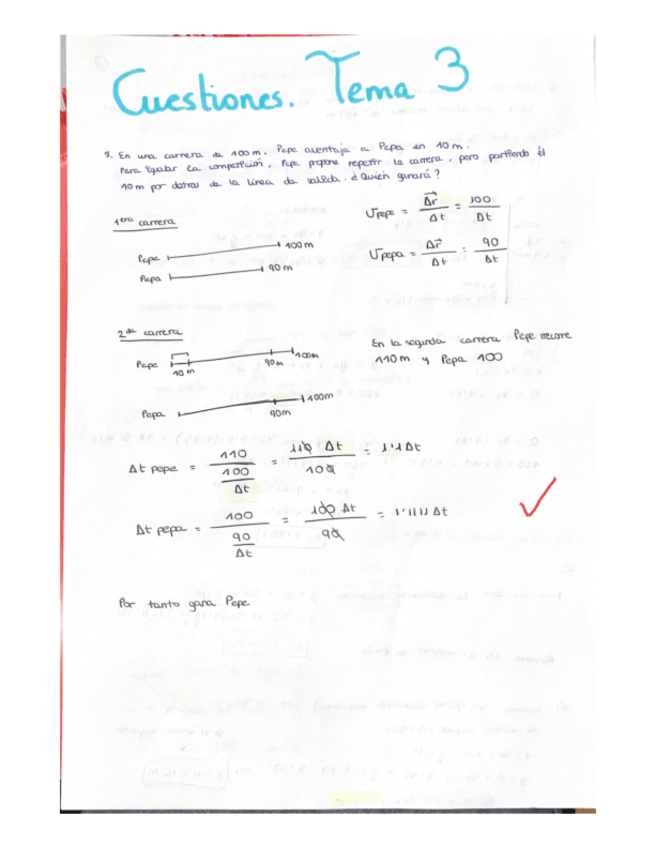 Cuestiones. Tema 3
1. En una carrera de 100 m. Pepe aventaja a Pepa en 10 m.
Para igualar la competición, Pepe propone repetir la carrera, pero partiendo él
10 m por detras de la línea de salida. ¿Quién ganará?
1era carrera
Pepe 100 m
Pepa 90 m
Vpepe = Δr/Δt = 100/Δt
Vpepa = Δr/Δt = 90/Δt
2da carrera
Pepe 10 m 90m 100m
Pepa 90m 100m
En la segunda carrera Pepe recorre
110 m y Pepa 100
Δt pepe = 110/(100/Δt) = 110 Δt/100 = 1'1 Δt
Δt pepa = 100/(90/Δt) = 100 Δt/90 = 1'111 Δt
Por tanto gana Pepe